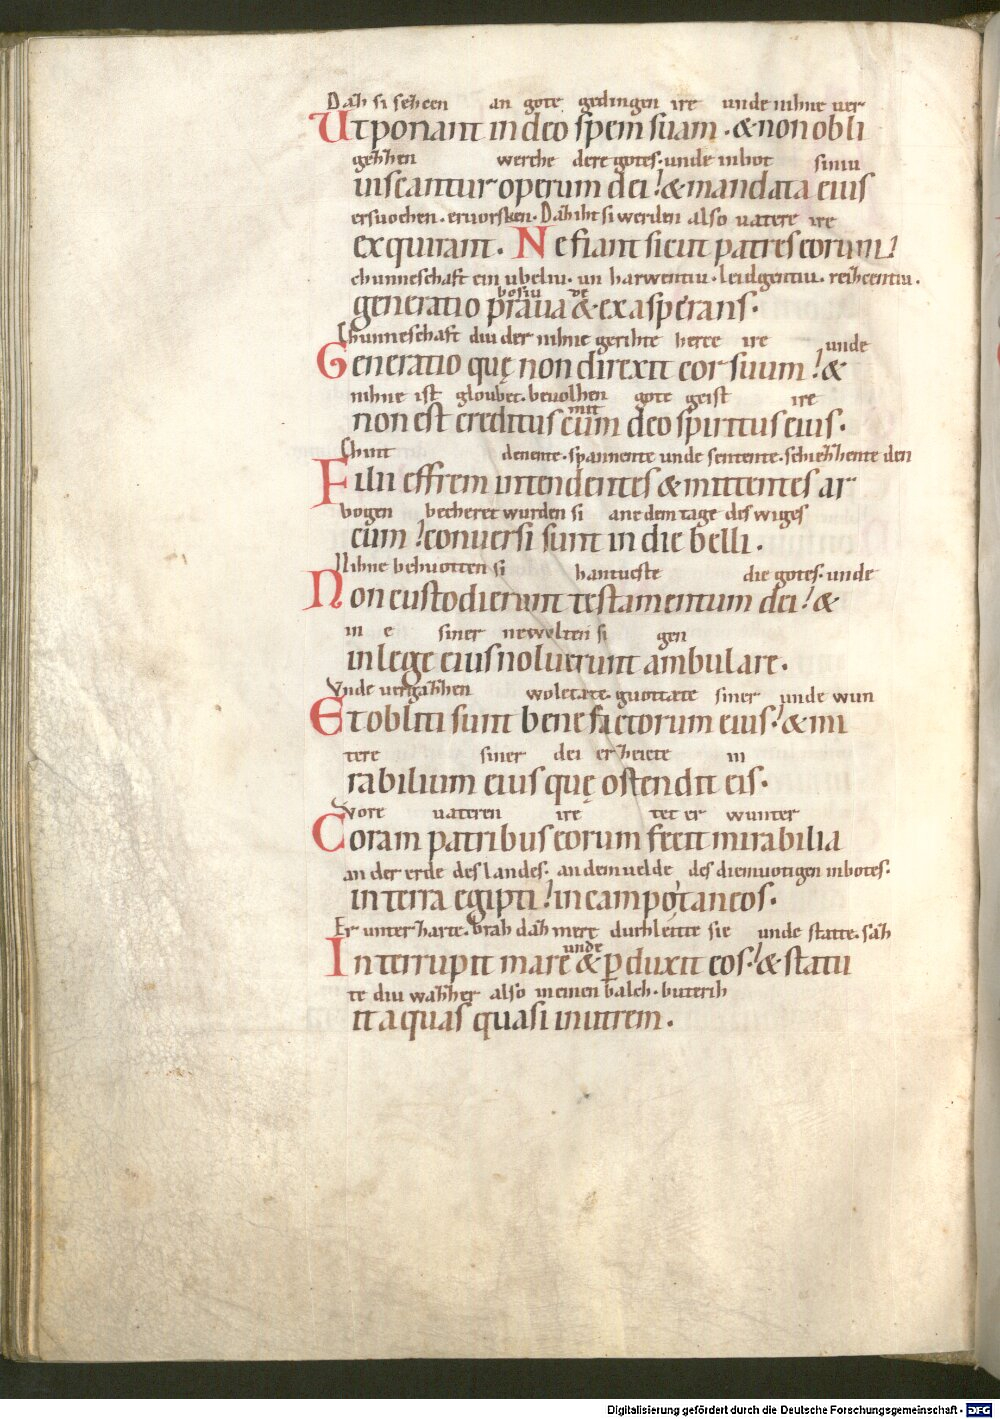 Dah si sehcen an gote gedingen ire unde nihne ver
Ut ponant in deo spem suam · & non obli
gehhen werche dere gotes · unde inbot siniu
viscantur operum dei & mandata eius
ersuochen · ervorsken · Dah iht si werden also vatere ire
exquirant · Ne fiant sicut patres eorum
chunneschaft ein ubeliu · un harwentiu · leidgentiu · reihcentiu ·
bosiu de
generatio praua & exasperans ·
Chunneschaft diu der nihne gerihte herce ire unde
Generatio quę non direxit cor suum & 
nihne ist gloubet · bevolhen gote geist ire
mit
non est creditus cum deo spiritus eius ·
Chint denente · spannente unde sentente · schiehhente den
Filii effrem intendentes & mittentes ar
bogen becheret wurden si ane dem tage des wiges
cum conuersi sunt in die belli ·
Nihne behuotten si hantueste die gotes · unde
Non custodierunt testamentum dei &
in e siner newolten si gen
in lege eius noluerunt ambulare ·
Unde vergahhen woletate · guottate siner unde wun
Et obliti sunt benefactorum eius & mi
tere siner dei er heicte in
rabilium eius quę ostendit eis ·
Vore vateren ire tet er wunter
Coram patribus eorum fecit mirabilia
an der erde des landes · an dem velde des diemuotigen inbotes ·
in terra egipti in campo taneos ·
Er unterharte · brah dah mere durhleitte sie unde statte · sah
unde
Interrupit mare & pduxit eos & statu
te diu wahher also in einen balch · buterih
it aquas quasi in utrem ·
Digitalisierung gefördert durch die Deutsche Forschungsgemeinschaft - DFG